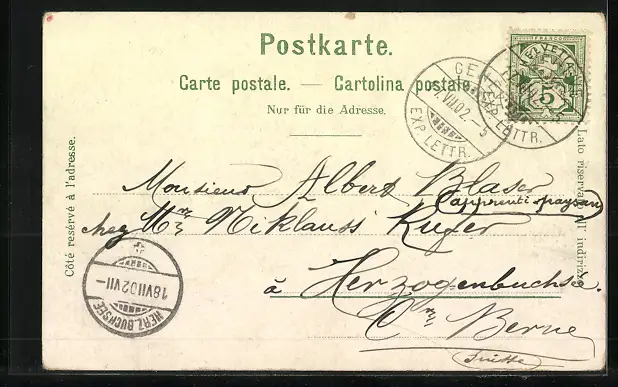 Postkarte.
Carte postale. — Cartolina postale.
Nur für die Adresse.
Côté resérvé à l'adresse.
Lato riserva all' indirizzo
HELVETIA
FRANCO
5
EXP. LETTR.
VII 02. - 5
EXP. LETTR.
Monsieur Albert Blaser
(apprenti paysan)
chez Mr Niklauss Kuger
à Herzogenbuchsée.
Ctn Berne
(Suisse)
18 VII 02 VII -
HERZ. BUCHSEE